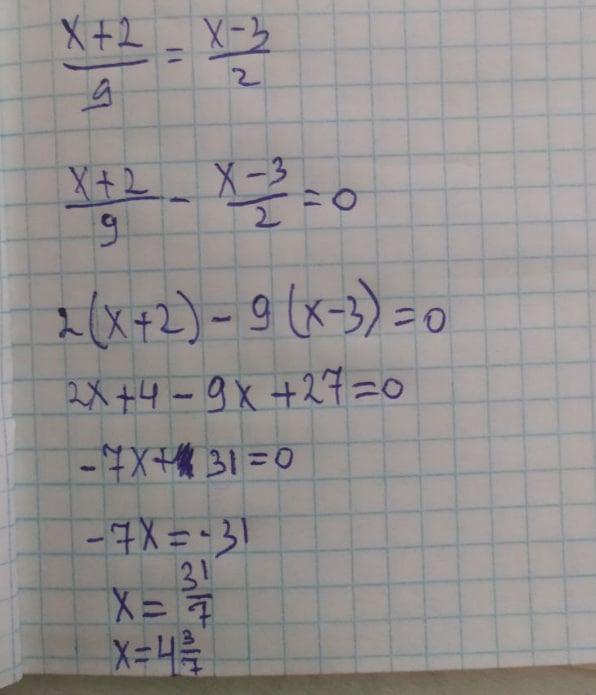 x+2/9 = x-3/2
x+2/9 - x-3/2 = 0
2(x+2) - 9(x-3) = 0
2x+4 - 9x+27=0
-7x+ 31=0
-7x=-31
x= 31/7
x=4 3/7